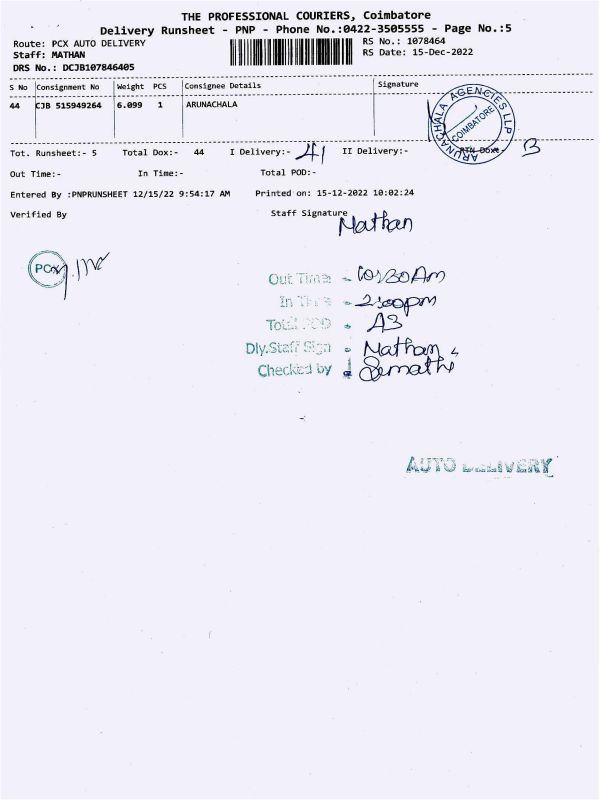 THE PROFESSIONAL COURIERS, Coimbatore
Delivery Runsheet - PNP - Phone No.:0422-3505555 - Page No.:5
Route: PCX AUTO DELIVERY
RS No.: 1078464
Staff: MATHAN
RS Date: 15-Dec-2022
DRS No.: DCJB107846405
S No Consignment No Weight PCS Consignee Details Signature
44 CJB 515949264 6.099 1 ARUNACHALA
ARUNACHALA AGENCIES LLP
COIMBATORE
Tot. Runsheet:- 5 Total Dox:- 44 I Delivery:- 41 II Delivery:- RTN Dox:- 3
Out Time:- In Time:- Total POD:-
Entered By :PNPRUNSHEET 12/15/22 9:54:17 AM Printed on: 15-12-2022 10:02:24
Verified By Staff Signature
Mathan
PCX
Out Time - 10:30 Am
In Time - 2:00pm
Total POD - A3
Dly.Staff Sign - Mathan
Checked by
AUTO DELIVERY